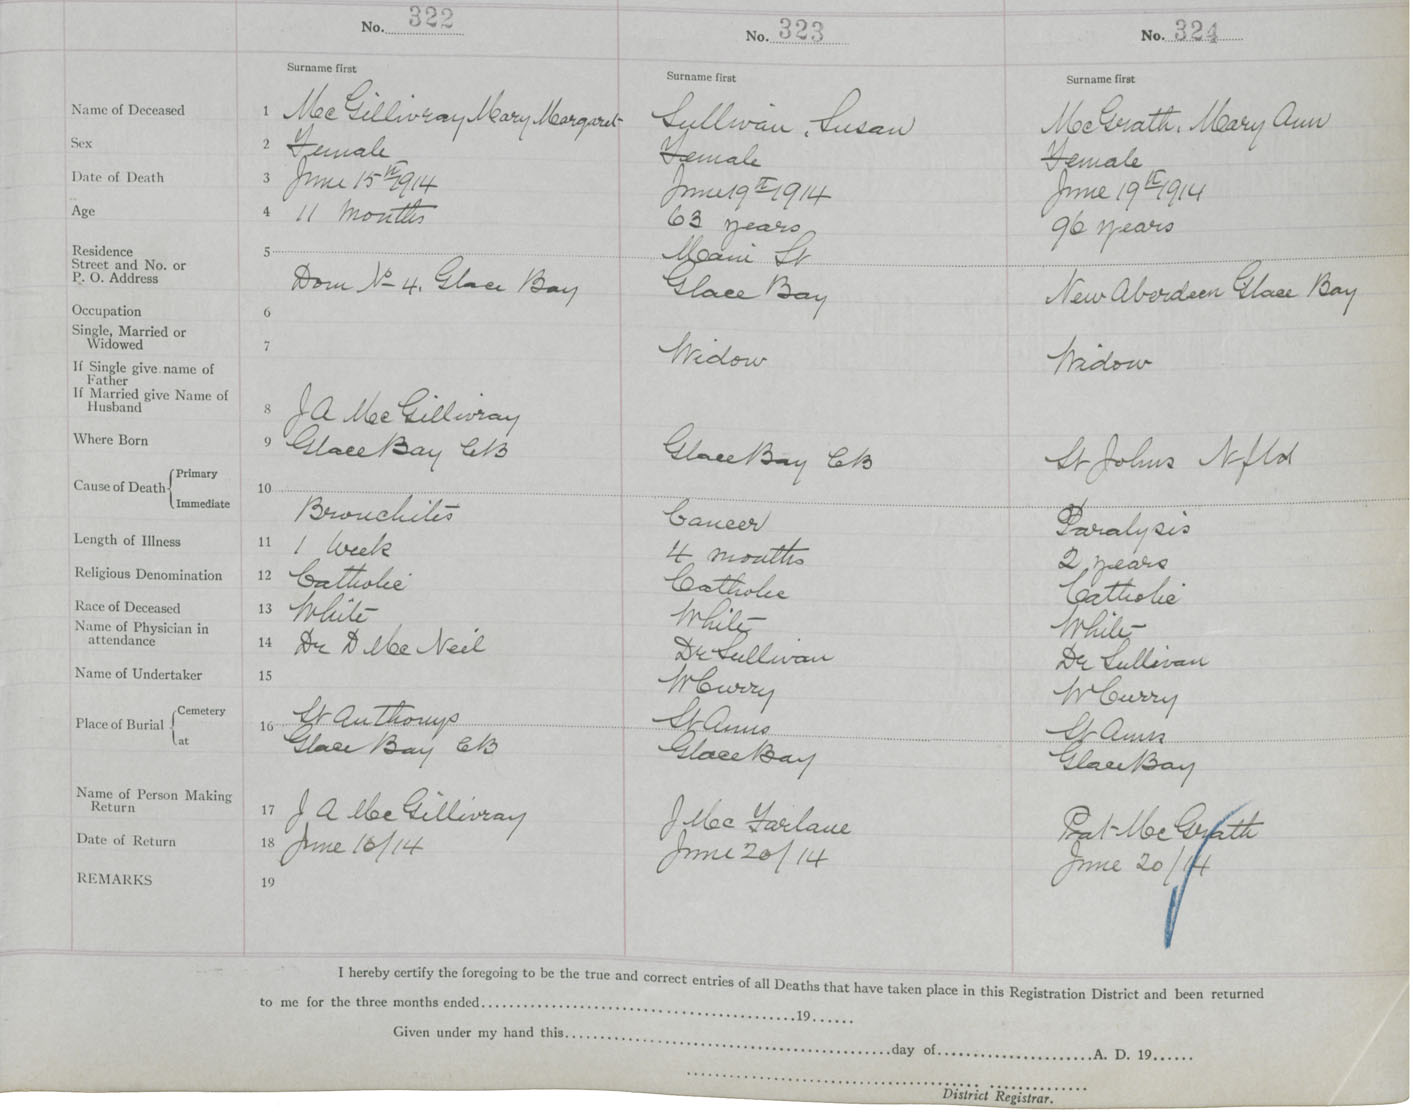 No. 322 No. 323 No. 324
Surname first Surname first Surname first
Name of Deceased 1 McGillivray Mary Margaret Sullivan, Susan McGrath, Mary Ann
Sex 2 Female Female Female
Date of Death 3 June 15th 1914 June 19th 1914 June 19th 1914
Age 4 11 months 63 years 96 years
Residence 5 Main St
Street and No. or
P. O. Address Dom No 4, Glace Bay Glace Bay New Aberdeen Glace Bay
Occupation 6
Single, Married or
Widowed 7 Widow Widow
If Single give name of
Father
If Married give Name of
Husband 8 J A McGillivray
Where Born 9 Glace Bay CB Glace Bay CB St Johns Nfld
Cause of Death Primary
10
Immediate Bronchitis Cancer Paralysis
Length of Illness 11 1 Week 4 months 2 years
Religious Denomination 12 Catholic Catholic Catholic
Race of Deceased 13 White White White
Name of Physician in
attendance 14 Dr D McNeil Dr Sullivan Dr Sullivan
Name of Undertaker 15 W Curry W Curry
Place of Burial Cemetery 16 St Anthonys St Anns St Anns
at Glace Bay CB Glace Bay Glace Bay
Name of Person Making
Return 17 J A McGillivray J McFarlane Pat McGrath
Date of Return 18 June 16/14 June 20/14 June 20/14
REMARKS 19
I hereby certify the foregoing to be the true and correct entries of all Deaths that have taken place in this Registration District and been returned
to me for the three months ended..........19......
Given under my hand this..........day of..........A. D. 19......
District Registrar.